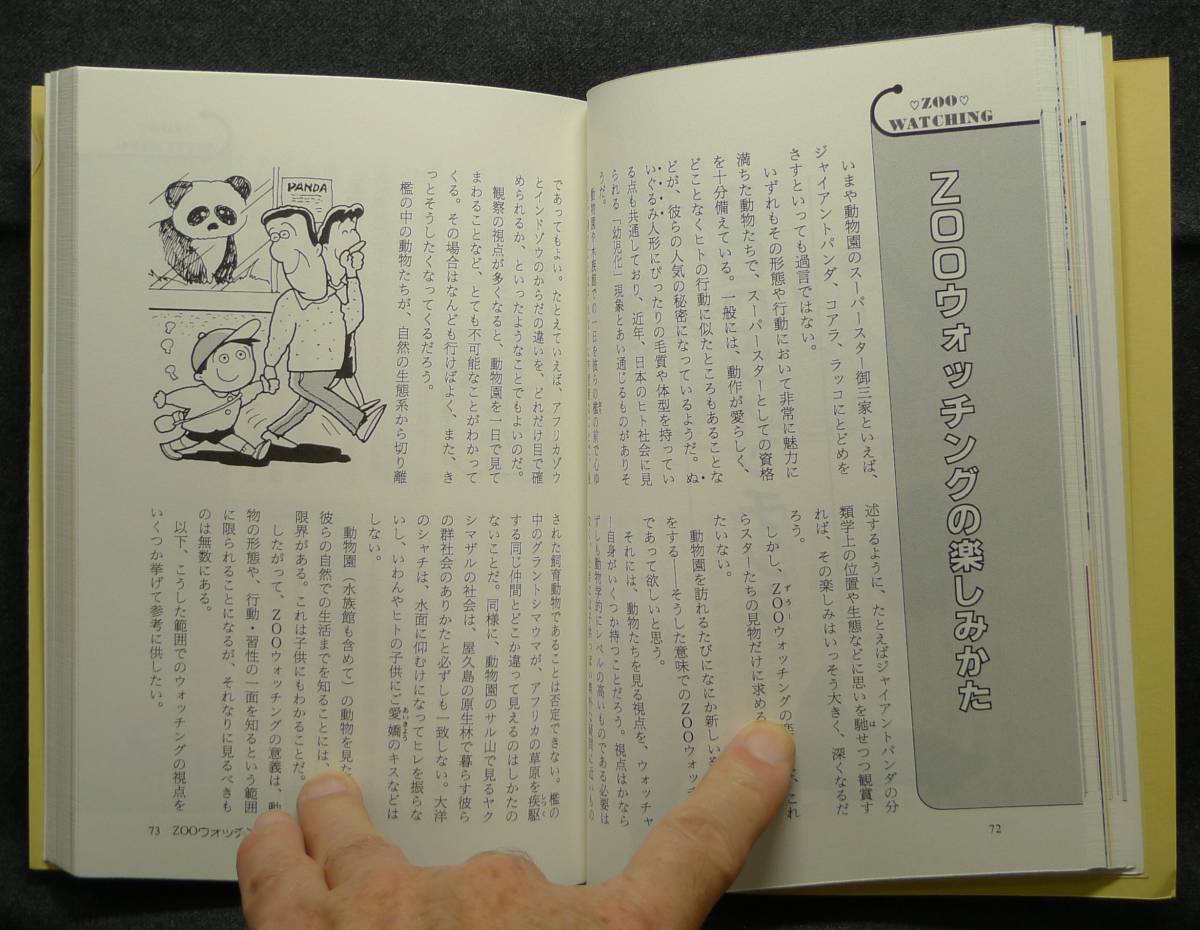 ♡ZOO♡
WATCHING
ZOOウォッチングの楽しみかた
いまや動物園のスーパースター御三家といえば、
ジャイアントパンダ、コアラ、ラッコにとどめを
さすといっても過言ではない。
いずれもその形態や行動において非常に魅力に
満ちた動物たちで、スーパースターとしての資格
を十分備えている。一般には、動作が愛らしく、
どことなくヒトの行動に似たところもあることな
どが、彼らの人気の秘密になっているようだ。ぬ
いぐるみ人形にぴったりの毛質や体型を持ってい
る点も共通しており、近年、日本のヒト社会に見
られる「幼児化」現象とあい通じるものがありそ
うだ。
述するように、たとえばジャイアントパンダの分
類学上の位置や生態などに思いを馳せつつ観賞す
れば、その楽しみはいっそう大きく、深くなるだ
ろう。
しかし、ZOOウォッチングの
これ
らスターたちの見物だけに求める
たいない。
動物園を訪れるたびになにか新しい
をする——そうした意味でのZOOウォッ
であって欲しいと思う。
それには、動物たちを見る視点を、ウォッチャ
ー自身がいくつか持つことだろう。視点はかなら
ずしも動物学的にレベルの高いものである必要は
72
であってもよい。たとえていえば、アフリカゾウ
とインドゾウのからだの違いを、どれだけ目で確
められるか、といったようなことでもよいのだ。
観察の視点が多くなると、動物園を一日で見て
まわることなど、とても不可能なことがわかって
くる。その場合はなんども行けばよく、また、き
っとそうしたくなってくるだろう。
檻の中の動物たちが、自然の生態系から切り離
PANDA
された飼育動物であることは否定できない。檻の
中のグラントシマウマが、アフリカの草原を疾駆
する同じ仲間とどこか違って見えるのはしかたの
ないことだ。同様に、動物園のサル山で見るヤク
シマザルの社会は、屋久島の原生林で暮らす彼ら
の群社会のありかたと必ずしも一致しない。大洋
のシャチは、水面に仰むけになってヒレを振らな
いし、いわんやヒトの子供にご愛嬌のキスなどは
しない。
動物園（水族館も含めて）の動物を見た
彼らの自然での生活までを知ることには、
限界がある。これは子供にもわかることだ。
したがって、ZOOウォッチングの意義は、動
物の形態や、行動・習性の一面を知るという範囲
に限られることになるが、それなりに見るべきも
のは無数にある。
以下、こうした範囲でのウォッチングの視点を
いくつか挙げて参考に供したい。
73 ZOOウォッチン